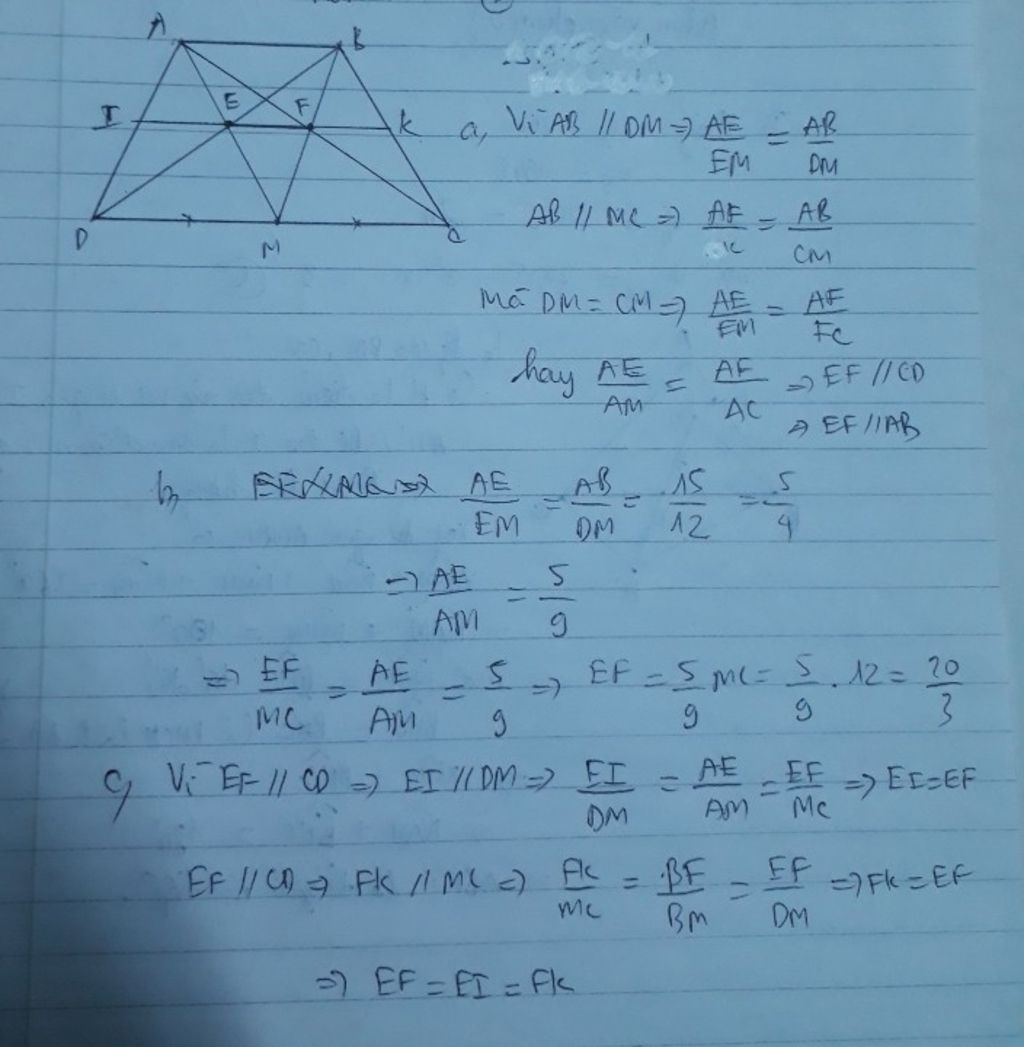 A B
I E F K
D M C
a, Vì AB // DM => AE/EM = AB/DM
AB // MC => AF/FC = AB/CM
Mà DM = CM => AE/EM = AF/FC
hay AE/AM = AF/AC => EF // CD
=> EF // AB
b, AE/EM = AB/DM = 15/12 = 5/4
=> AE/AM = 5/9
=> EF/MC = AE/AM = 5/9 => EF = 5/9 MC = 5/9 . 12 = 20/3
c, Vì EF // CD => EI // DM => EI/DM = AE/AM = EF/MC => EI = EF
EF // CD => FK // MC => FK/MC = BF/BM = EF/DM => FK = EF
=> EF = EI = FK